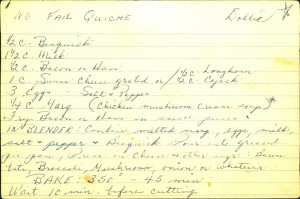 NO FAIL QUICHE Dollie
1/2 C. Bisquick
1 1/2 C. Milk
1/2 C. Bacon or Ham
1 C. Swiss Cheese grated or 1/2 C. Longhorn
1/2 C. Cojack
3 Eggs - Salt & Pepper
1/4 C. Marg (Chicken mushroom cream soup)
Fry Bacon or Ham in small pieces.
IN BLENDER: Combine melted marg, eggs, milk,
salt & pepper & Bisquick. Pour into greased
pie pan, Drop in cheese & other ingr. Bacon
bits, Broccoli, Mushrooms, onion or whatever
BAKE: 350° - 45 min
Wait 10 min. before cutting